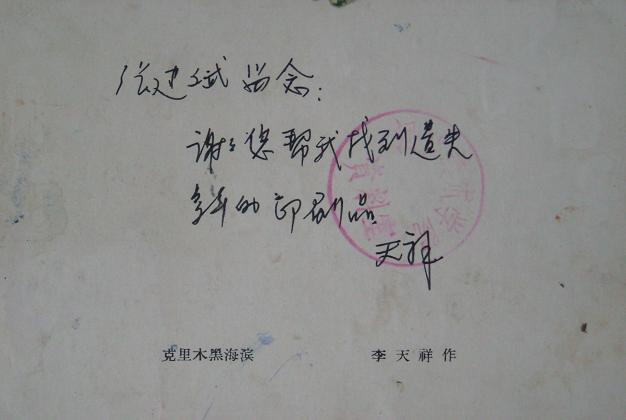 张建斌留念：
谢谢您帮我找到遗失
多年的印刷品
天祥
克里木黑海滨 李天祥作